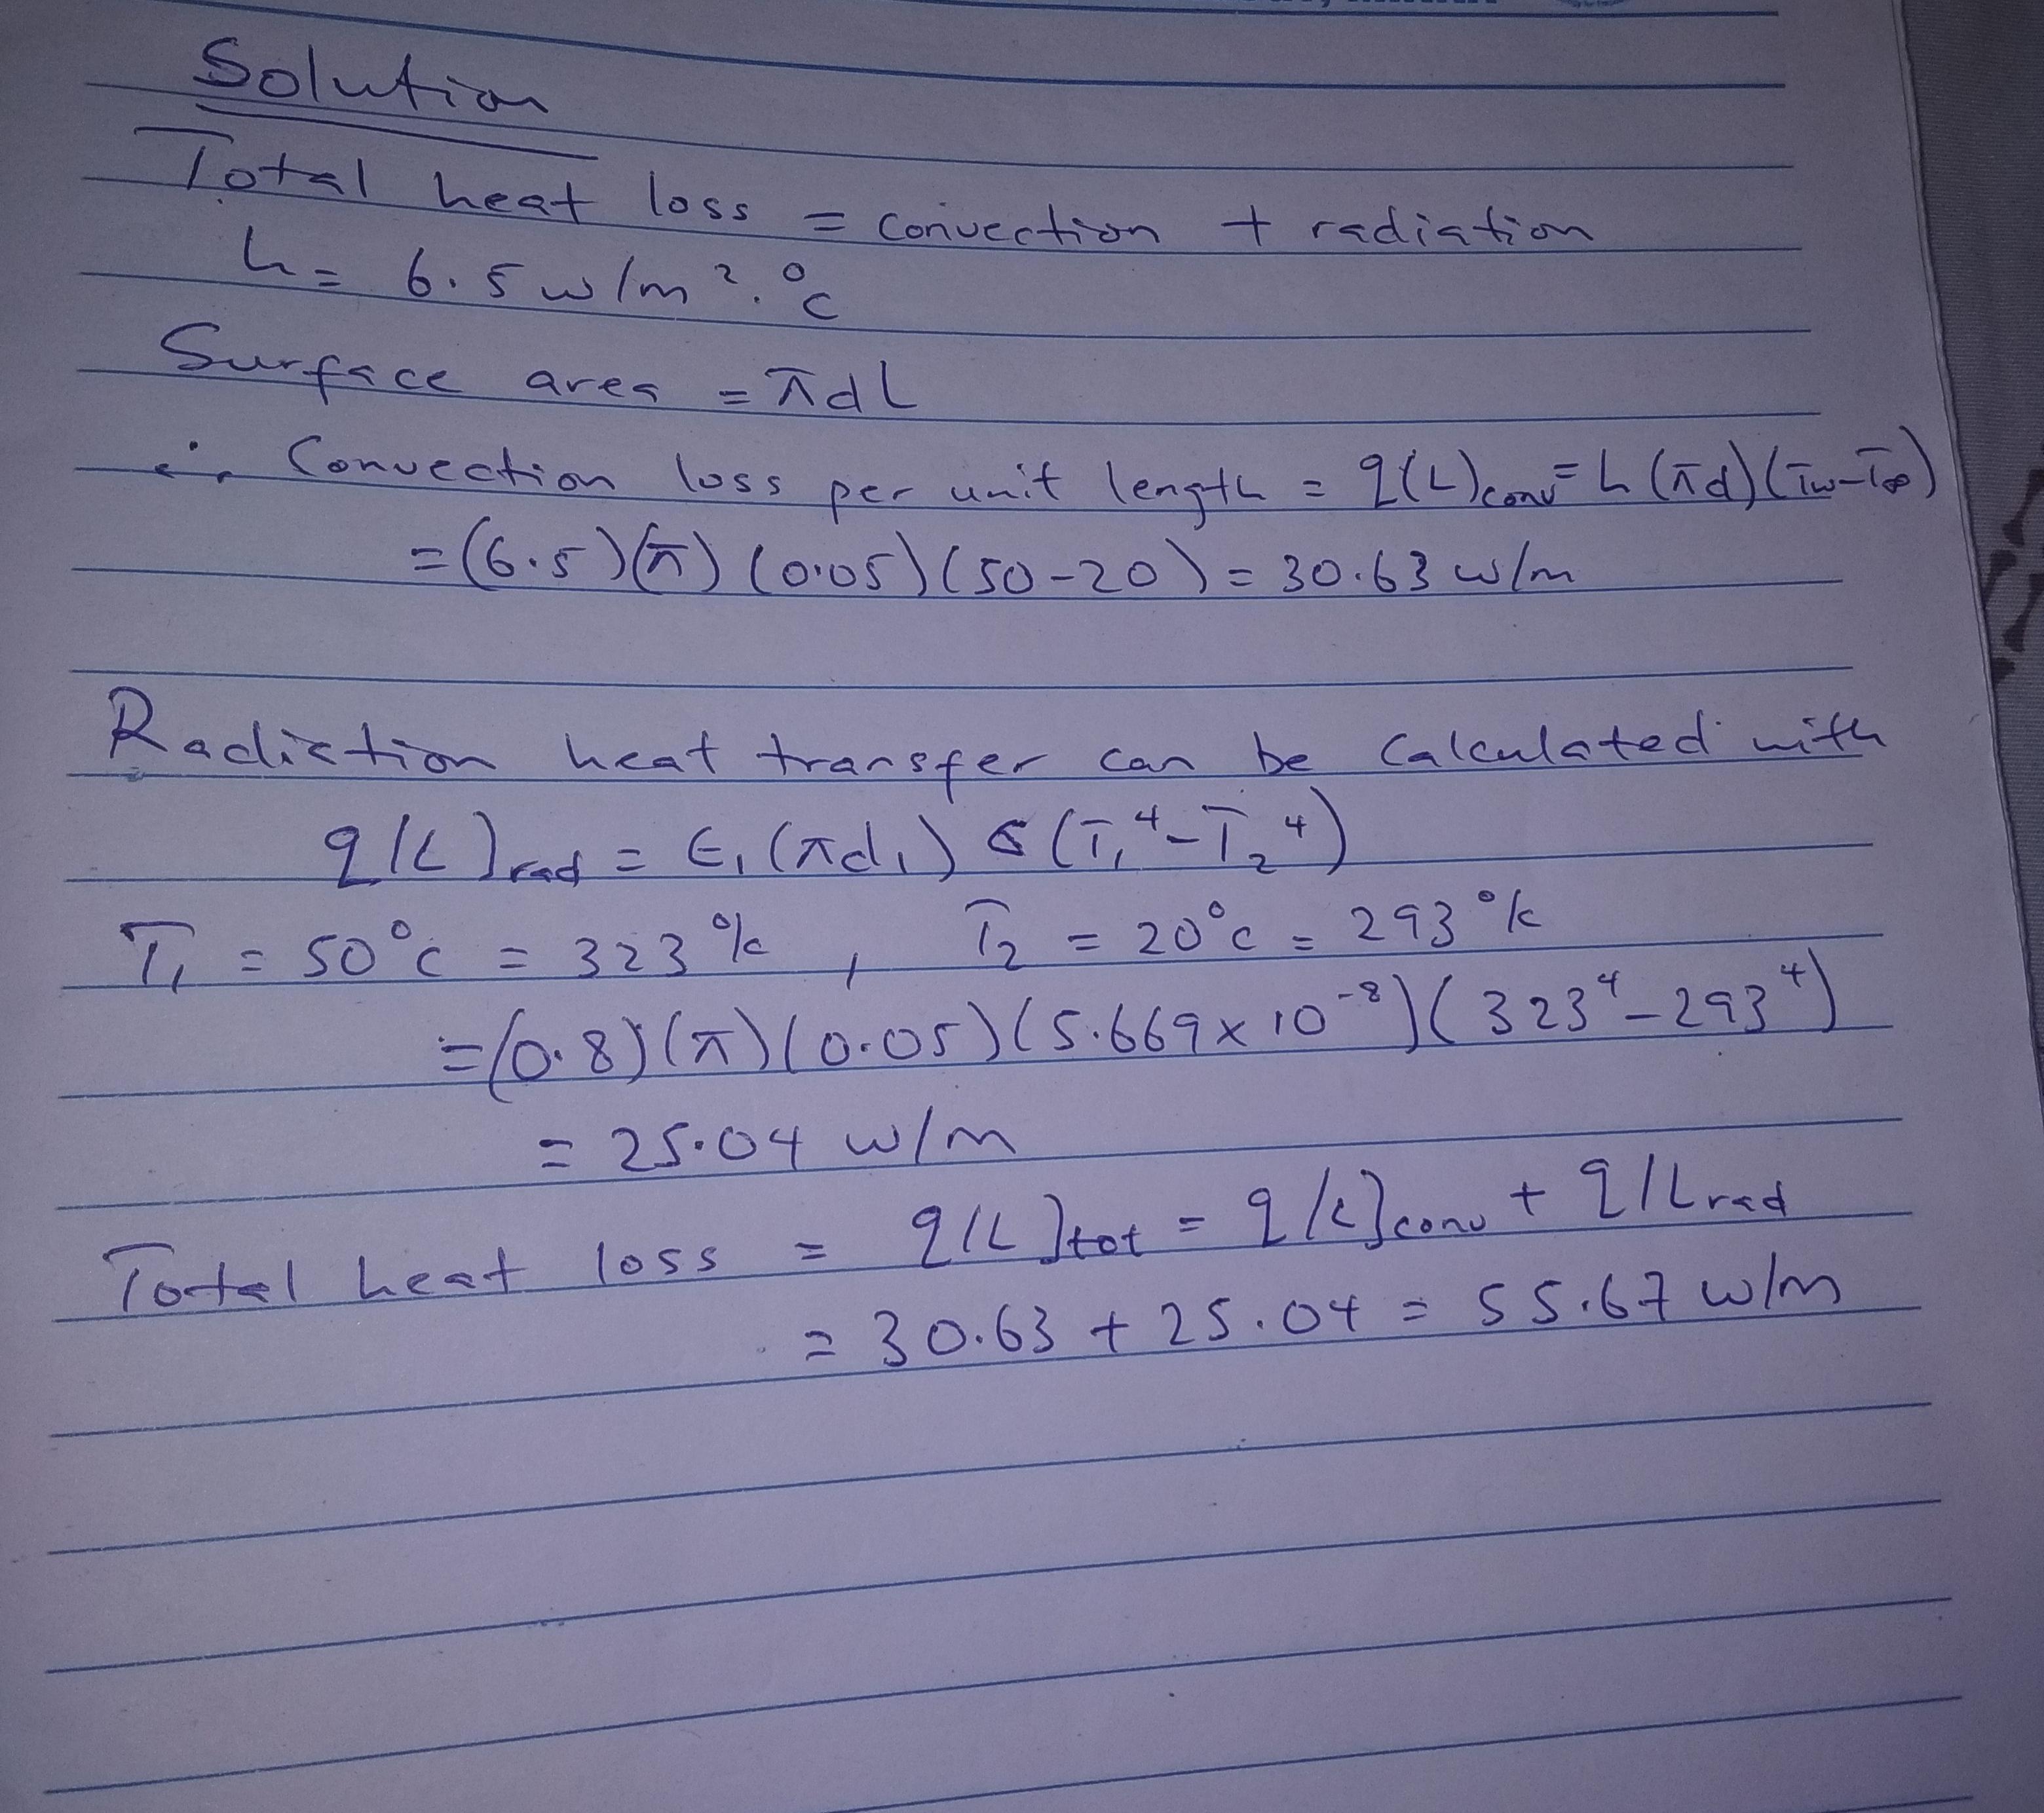 Solution
Total heat loss = convection + radiation
h = 6.5 w/m². °c
Surface area = πdL
∴ Convection loss per unit length = q/L)conv = h (πd)(Tw-T∞)
= (6.5)(π) (0.05)(50-20) = 30.63 w/m
Radiation heat transfer can be calculated with
q/L]rad = ϵ₁(πd₁) σ (T₁⁴-T₂⁴)
T₁ = 50°c = 323°k , T₂ = 20°c = 293°k
= (0.8)(π)(0.05)(5.669x10⁻⁸)(323⁴-293⁴)
= 25.04 w/m
Total heat loss = q/L]tot = q/L]conv + q/Lrad
= 30.63 + 25.04 = 55.67 w/m